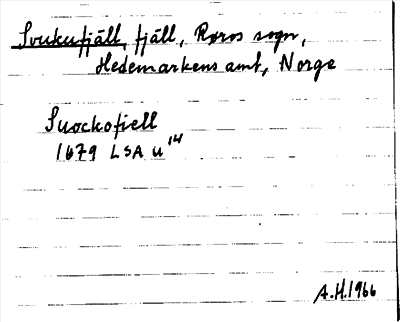 Svukufjäll, fjäll, Røros sogn,
Hedemarkens amt, Norge
Suockofiell
1679 LSA u 14
A.H. 1966